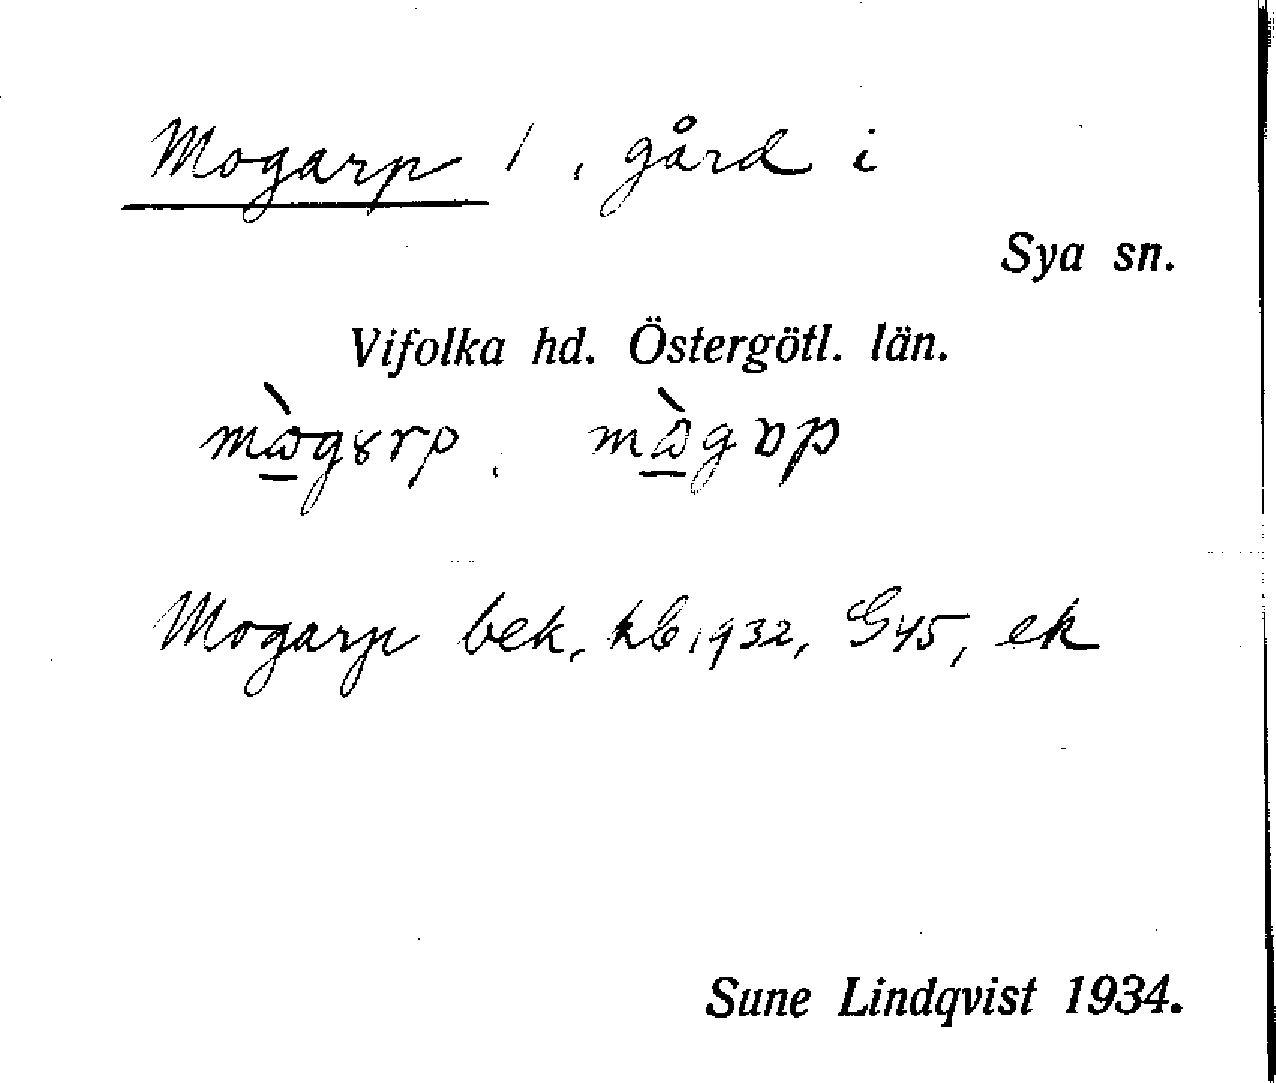 Mogarp 1, gård i
Sya sn.
Vifolka hd. Östergötl. län.
Mogarp bek, kb 1932, G45, ek
Sune Lindqvist 1934.